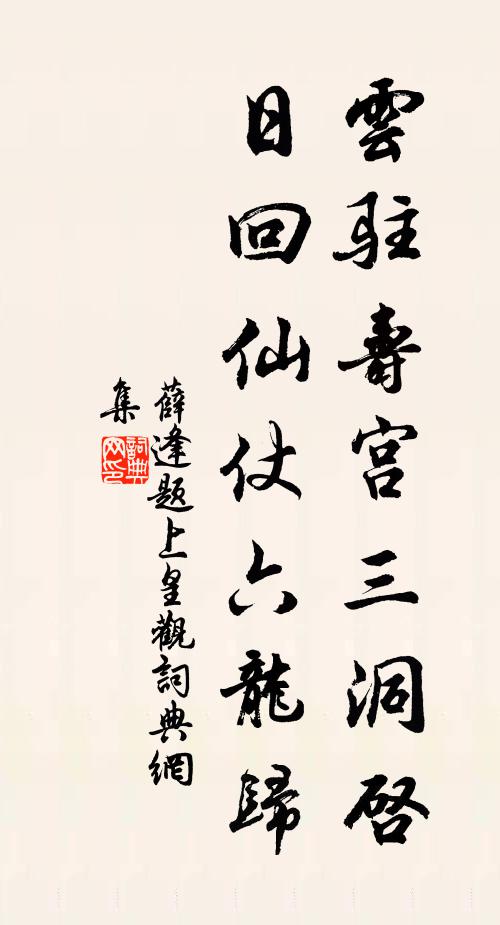 雲駐壽宮三洞啓
日回仙仗六龍歸
薛逢題上皇觀詞典網
集
詞典
网印